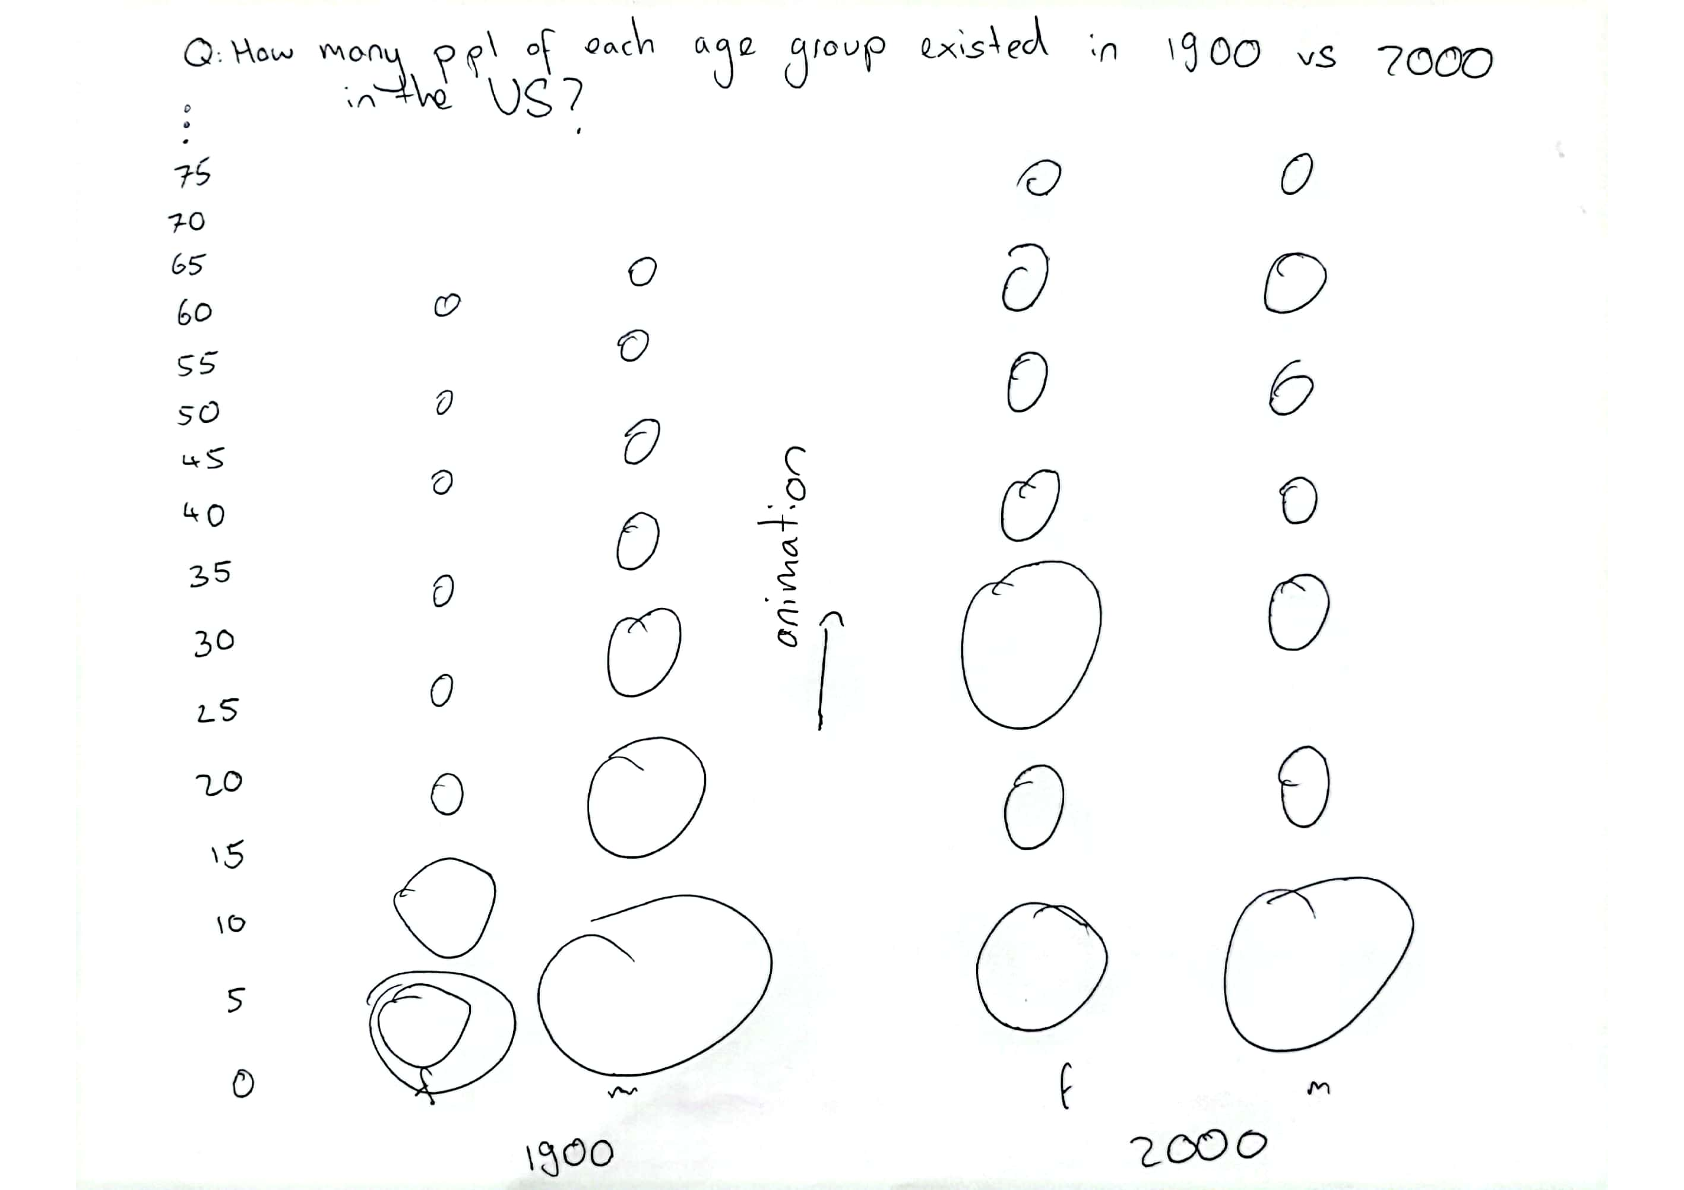 Q: How many ppl of each age group existed in 1900 vs 2000
in the US?
75
70
65
60
55
50
45
40
35
30
25
20
15
10
5
0
animation
f
m
f
m
1900
2000